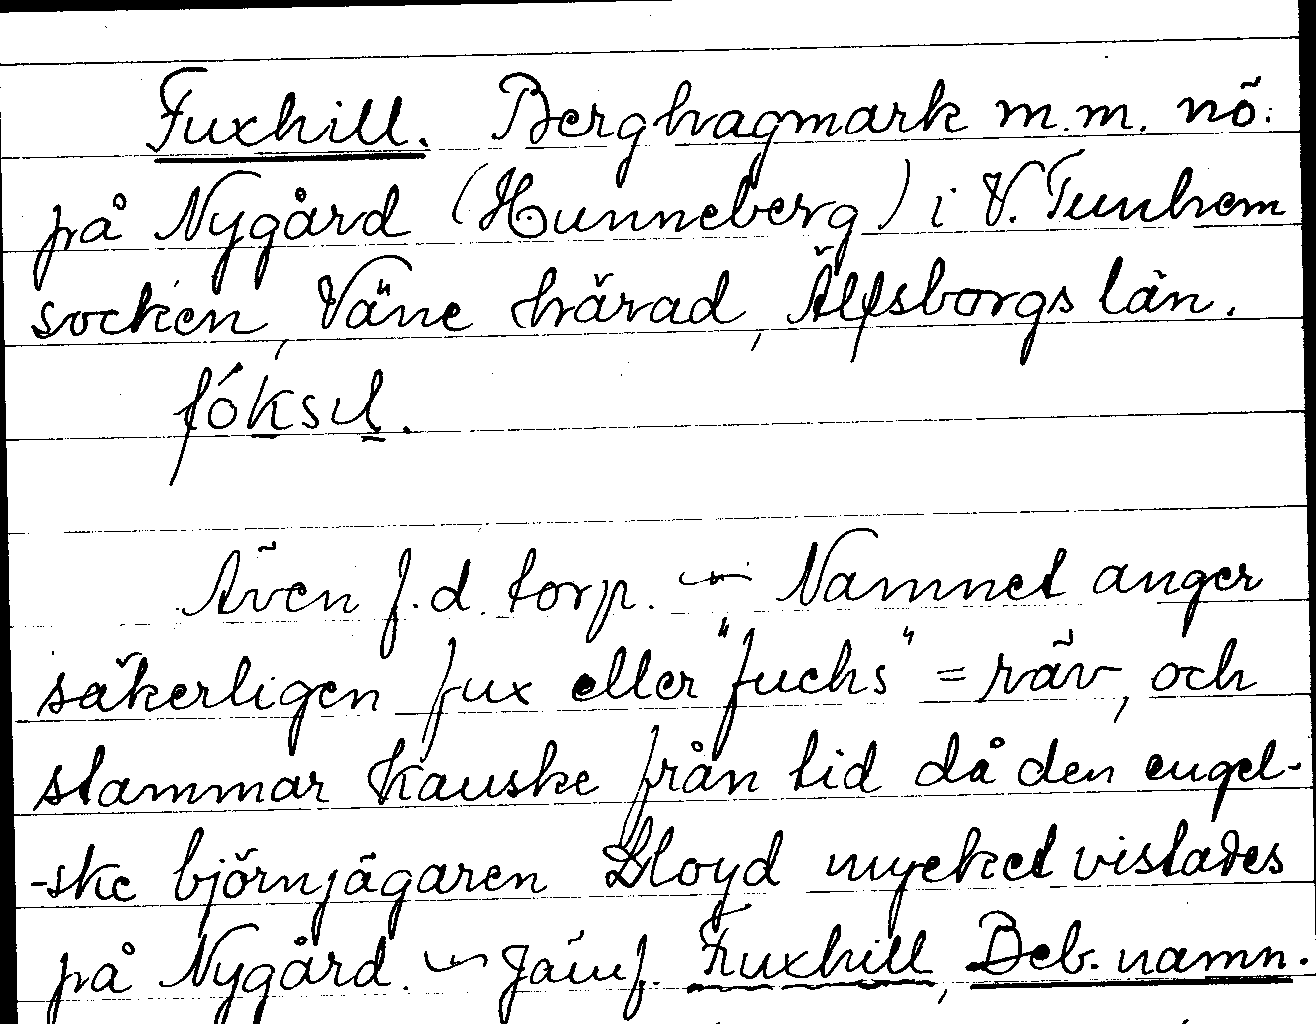 Fuxhill. Berghagmark m.m. nö.
på Nygård (Hunneberg) i V. Tunhem
socken, Väne härad, Älfsborgs län.
fóksıl.
Även f.d. torp. — Namnet anger
säkerligen fux eller "fuchs" = räv, och
stammar kanske från tid då den engel-
-ske björnjägaren Lloyd mycket vistades
på Nygård. — Jämf. Fuxhill, Beb. namn.